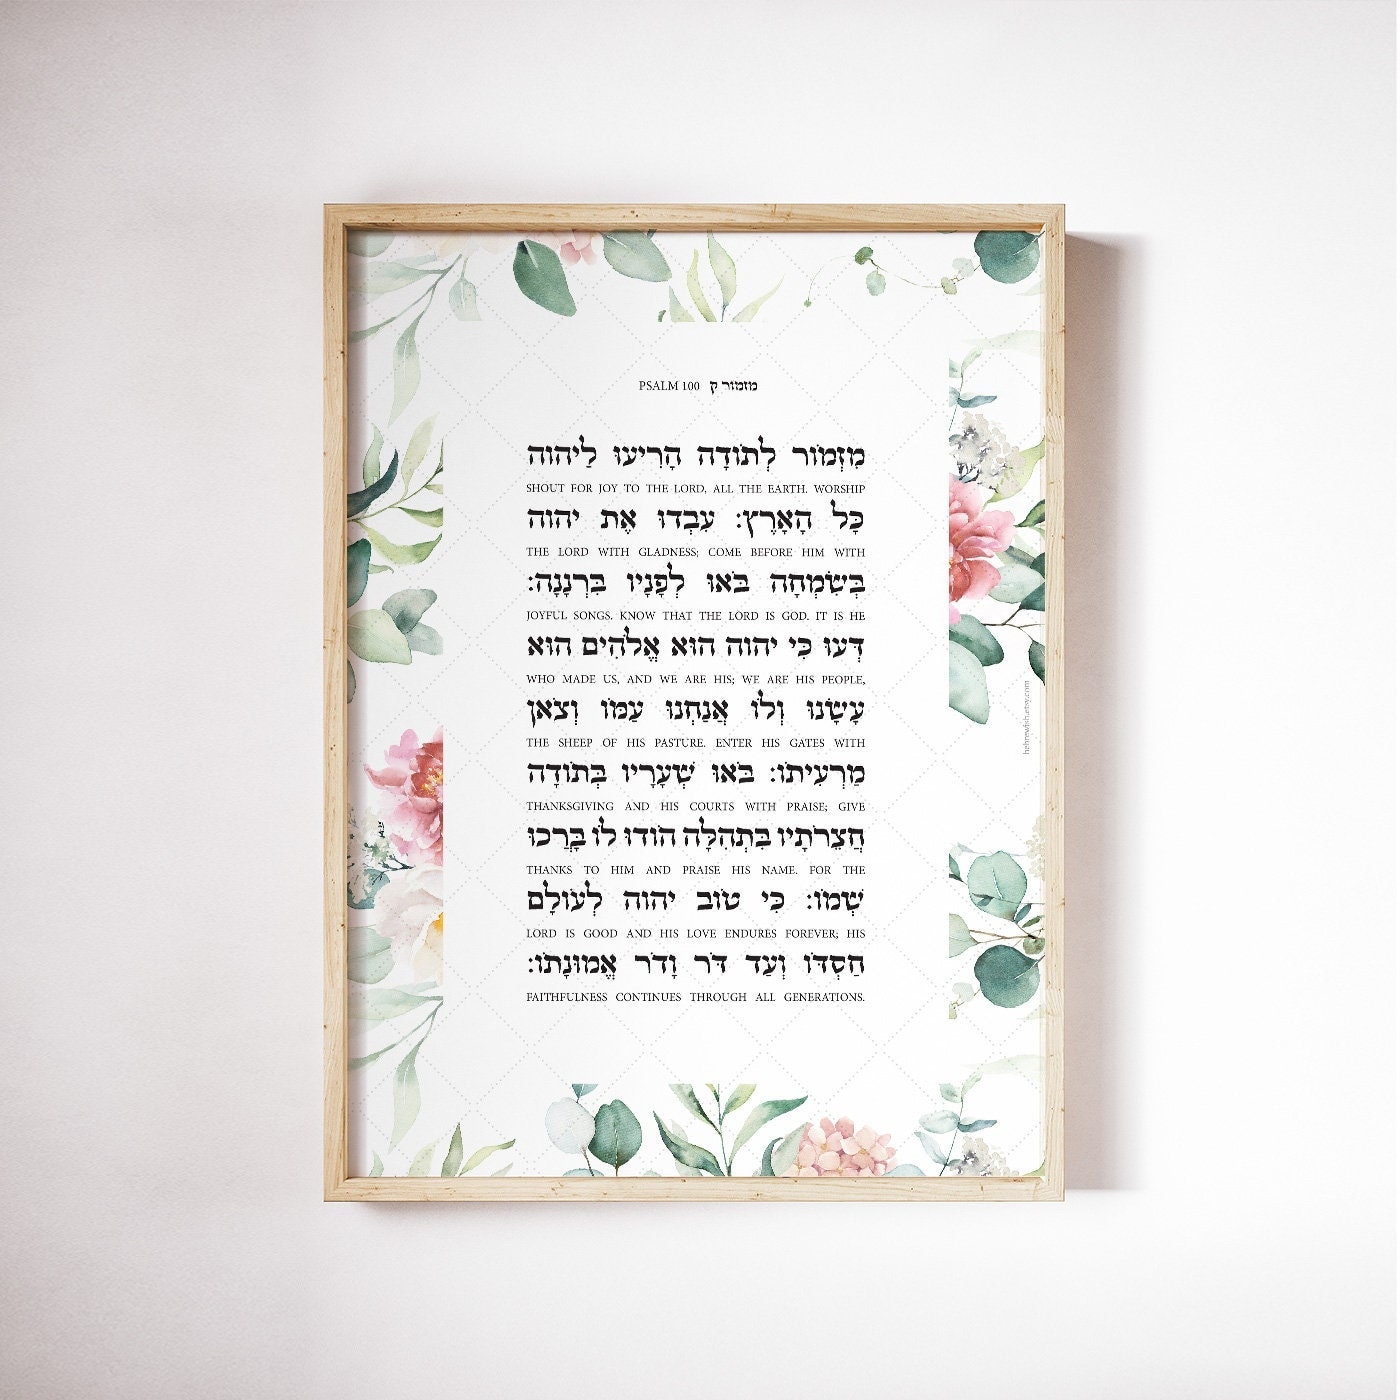 PSALM 100 מזמור ק
מִזְמוֹר לְתוֹדָה הָרִיעוּ לַיהוה
SHOUT FOR JOY TO THE LORD, ALL THE EARTH. WORSHIP
כָּל הָאָרֶץ: עִבְדוּ אֶת יהוה
THE LORD WITH GLADNESS; COME BEFORE HIM WITH
בְּשִׂמְחָה בֹּאוּ לְפָנָיו בִּרְנָנָה:
JOYFUL SONGS. KNOW THAT THE LORD IS GOD. IT IS HE
דְּעוּ כִּי יהוה הוּא אֱלֹהִים הוּא
WHO MADE US, AND WE ARE HIS; WE ARE HIS PEOPLE,
עָשָׂנוּ וְלוֹ אֲנַחְנוּ עַמּוֹ וְצֹאן
THE SHEEP OF HIS PASTURE. ENTER HIS GATES WITH
מַרְעִיתוֹ: בֹּאוּ שְׁעָרָיו בְּתוֹדָה
THANKSGIVING AND HIS COURTS WITH PRAISE; GIVE
חֲצֵרֹתָיו בִּתְהִלָּה הוֹדוּ לוֹ בָּרֲכוּ
THANKS TO HIM AND PRAISE HIS NAME. FOR THE
שְׁמוֹ: כִּי טוֹב יהוה לְעוֹלָם
LORD IS GOOD AND HIS LOVE ENDURES FOREVER; HIS
חַסְדּוֹ וְעַד דֹּר וָדֹר אֱמוּנָתוֹ:
FAITHFULNESS CONTINUES THROUGH ALL GENERATIONS.
hebrewish.etsy.com